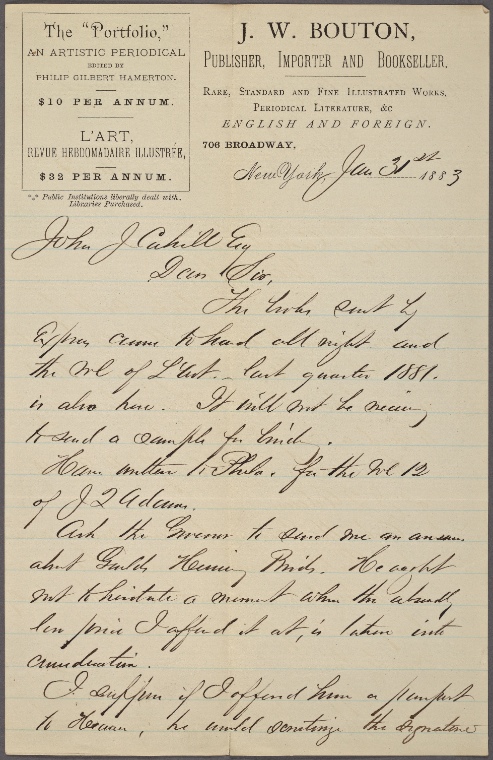 The "Portfolio,"
AN ARTISTIC PERIODICAL
EDITED BY
PHILIP GILBERT HAMERTON.
$10 PER ANNUM.
L'ART,
REVUE HEBDOMADAIRE ILLUSTRÉE,
$32 PER ANNUM.
Public Institutions liberally dealt with.
Libraries Purchased.
J. W. BOUTON,
PUBLISHER, IMPORTER AND BOOKSELLER.
RARE, STANDARD AND FINE ILLUSTRATED WORKS,
PERIODICAL LITERATURE, &C
ENGLISH AND FOREIGN.
706 BROADWAY,
New York, Jan 31st 1883
John J Cahill Esq
Dear Sir,
The books sent by
Express came to hand all right and
the vol of L'Art. - last quarter 1881.
is also here. It will not be necessary
to send a sample for binding.
Have written to Phila. for the vol 12
of J Q Adams.
Ask the Governor to send me an answer
about Goulds Humming Birds. He ought
not to hesitate a moment when the absurdly
low price I offered it at, is taken into
consideration.
I suppose if I offered him a passport
to Heaven, he would scrutinize the signature